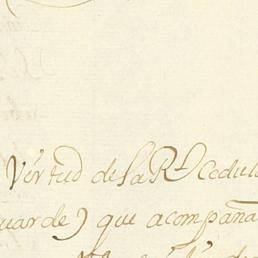 Virtud de la Rl Cedula
uarde) que acompaña